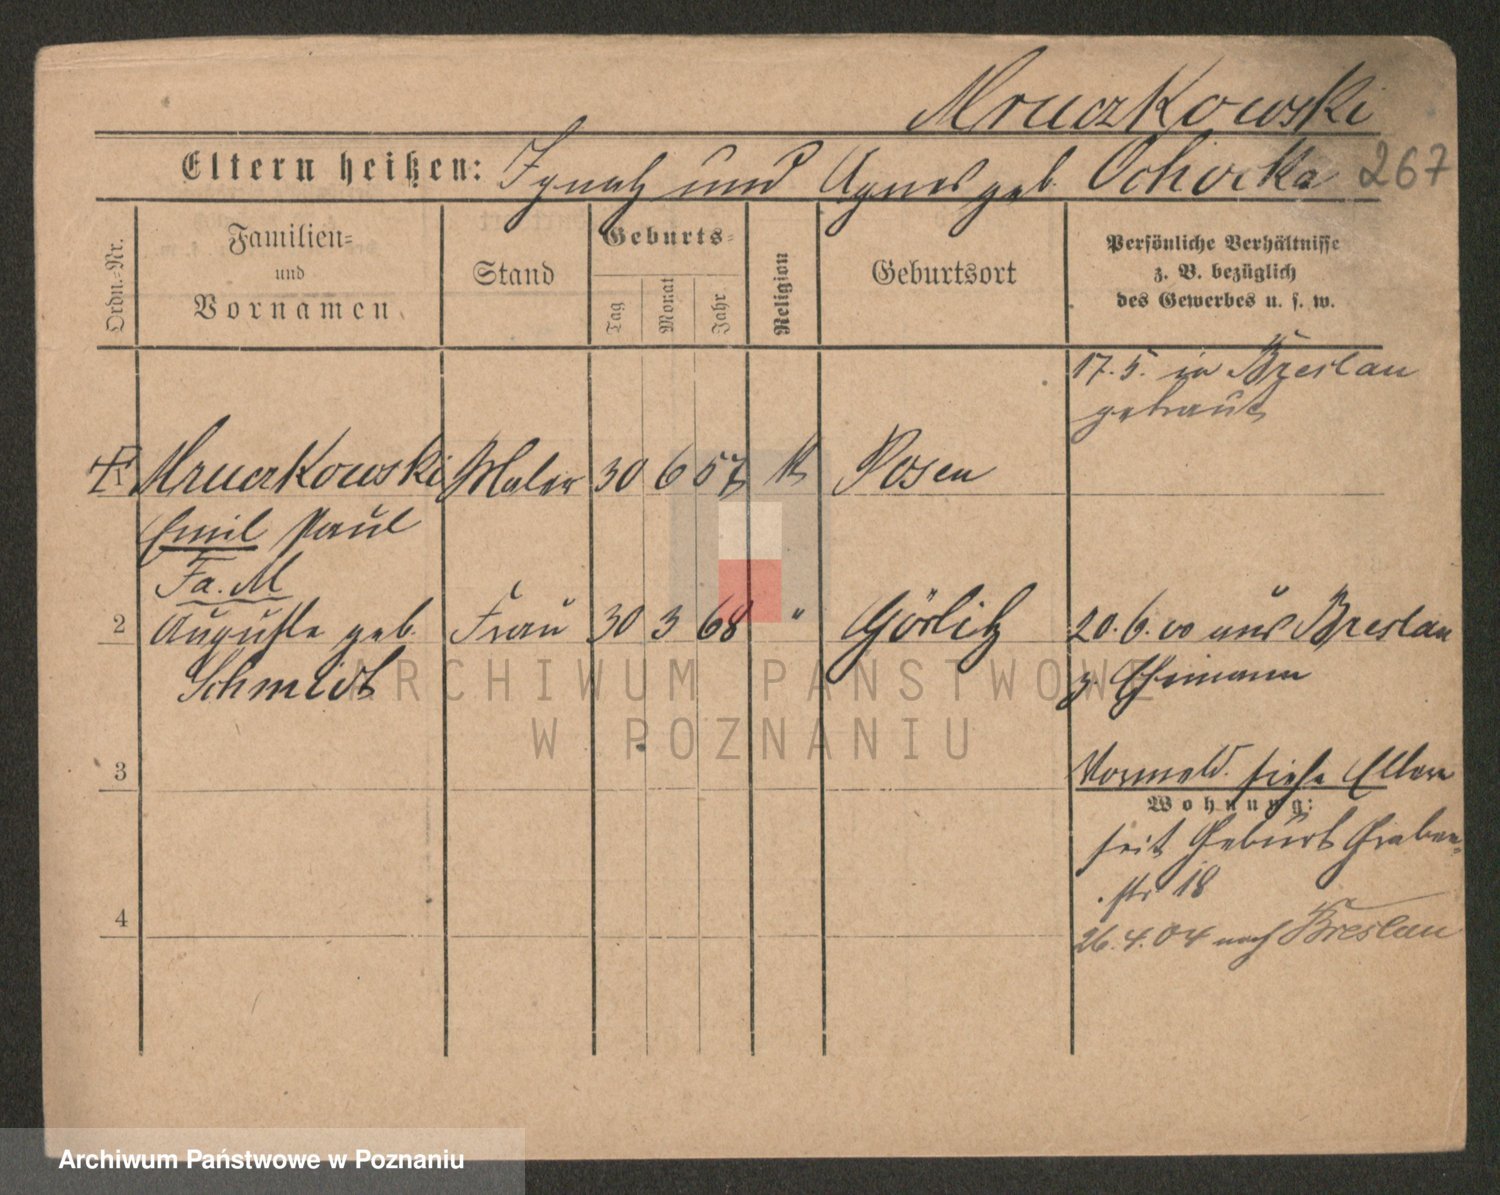 Mruczkowski
Eltern heißen: Ignatz und Agnes geb. Ochocka 267
Ordn.=Nr.
Familien=
und
Vornamen
Stand
Geburts=
Tag
Monat
Jahr
Religion
Geburtsort
Persönliche Verhältnisse
z. B. bezüglich
des Gewerbes u. s. w.
17. 5. in Breslau
getraut
Mruczkowski Maler 30 6 57 k Posen
Emil Paul
Fa. M
2 Auguste geb. Frau 30 3 68 " Görlitz 20. 6. 00 aus Breslau
Schmidt z. Ehemann
3 Vormeld. siehe Eltern
Wohnung:
seit Geburt Graben=
str 18
4 26. 4. 04 nach Breslau
ARCHIWUM PAŃSTWOWE
W POZNANIU
Archiwum Państwowe w Poznaniu